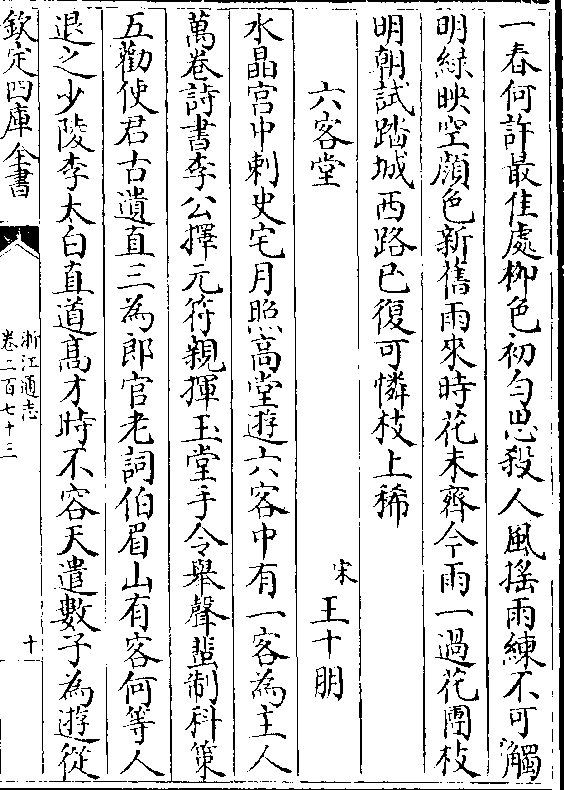 一春何許最佳處柳色初勻思殺人風揺雨練不可觸
明緑映空顔色新舊雨來時花未齊今雨一過花團枝
明朝試踏城西路已復可憐枝上稀
六客堂
宋 王十朋
水晶宫中刺史宅月照高堂遊六客中有一客為主人
萬卷詩書李公擇元符親揮玉堂手令舉聲蜚制科策
五勸使君古遺直三為郎官老詞伯眉山有客何等人
退之少陵李太白直道髙才時不容天遣數子為遊從
欽定四庫全書
浙江通志
卷二百七十三
十